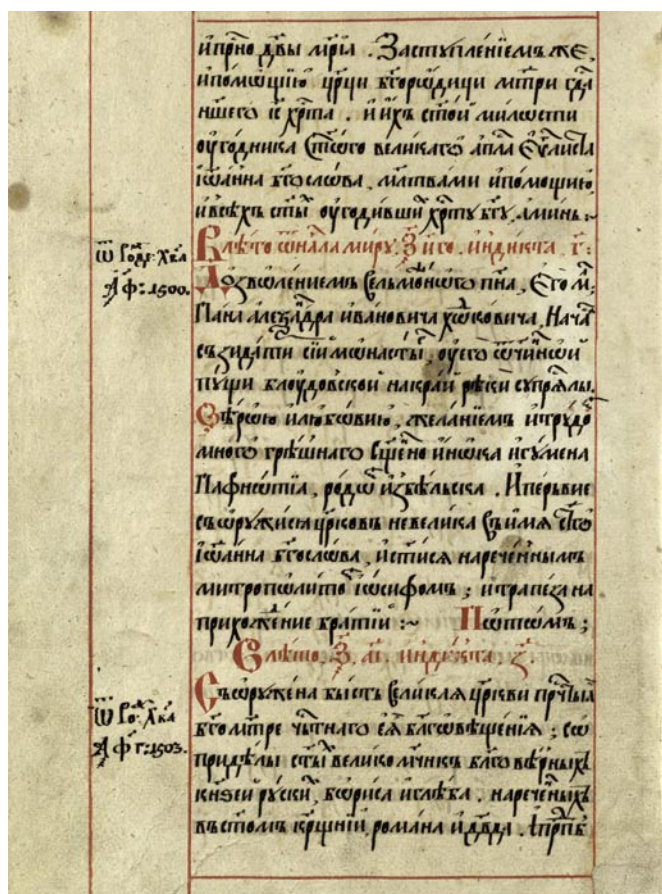 и прⷭ҇но дв҃ы мр҃їа . Заступленїемъ же,
и помощїю цр҃ци бг҃ородици мт҃ри гдⷭ҇а
нш҃его іс҃ хрⷭ҇та . и ихъ ст҃ои милости
оугодника ст҃ого великаго апл҃а еѵⷢ҇листа
іѡанна бг҃ослѡва , мл҃твами и помощию,
и всѣхъ ст҃ы оугодивши хрⷭ҇ту бг҃у, аминь :~
В лѣто ѿ начала миру ҂з҃ и҃ го . индикта г҃ :
ѿ Рожⷣе: Хв҃а
҂аф҃ : 1500.
Дозволениемъ вельмѡжнѡго пн҃а , Его м҃ :
Пана алеѯандра ивановича хѡⷣковича, Нача
съзидати сїи мѡнасты , оу его ѿчинѡи
пущи блоудовскои на краи рѣки супрялы.
Вѣрою и любовию , желанїемъ и трудоⷨ
много грѣшнаго сщ҃енно инѡка игумена
Пафнѡтїа , родѡ из бѣльска . И перьвие
съѡружися цр҃ковъ невелика въ имя ст҃го
іѡанна бг҃ослѡва , и ст҃ися нареченнымъ
митрополитоⷨ іѡсифомъ ; и трапеза на
прихожение братїи :~ Пѡтѡмъ ;
В лѣто, ҂з҃ . аі҃ . индикта , з҃ .
ѿ Роⷤ : Хв҃а
҂аф҃г : 1503.
Съѡружена бысть великая цр҃кви прч҃тыꙗ
бг҃омт҃ре чьⷭ҇тнаго еꙗ благовѣщенїꙗ ; со
придѣлы ст҃ы великомч҃никъ благовѣрныхъ
кнѕеи руски , бѡриса и глѣба . нареченыхъ
въ ст҃омъ кр҃щнїи , романа и дв҃да . І прпⷣб